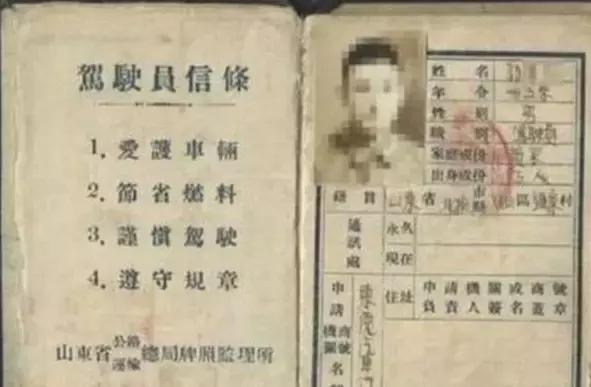 駕駛員信條
1.愛護車輛
2.節省燃料
3.謹慎駕駛
4.遵守規章
山東省公路運輸總局牌照監理所
姓名
年令
性別 男
職別 駕駛員
家庭成份
出身成份 工人
籍貫 山東省 市縣 區 村
通訊處 永久
現在
申請機關商號名稱 住址 申請機關或商號
負責人簽名蓋章